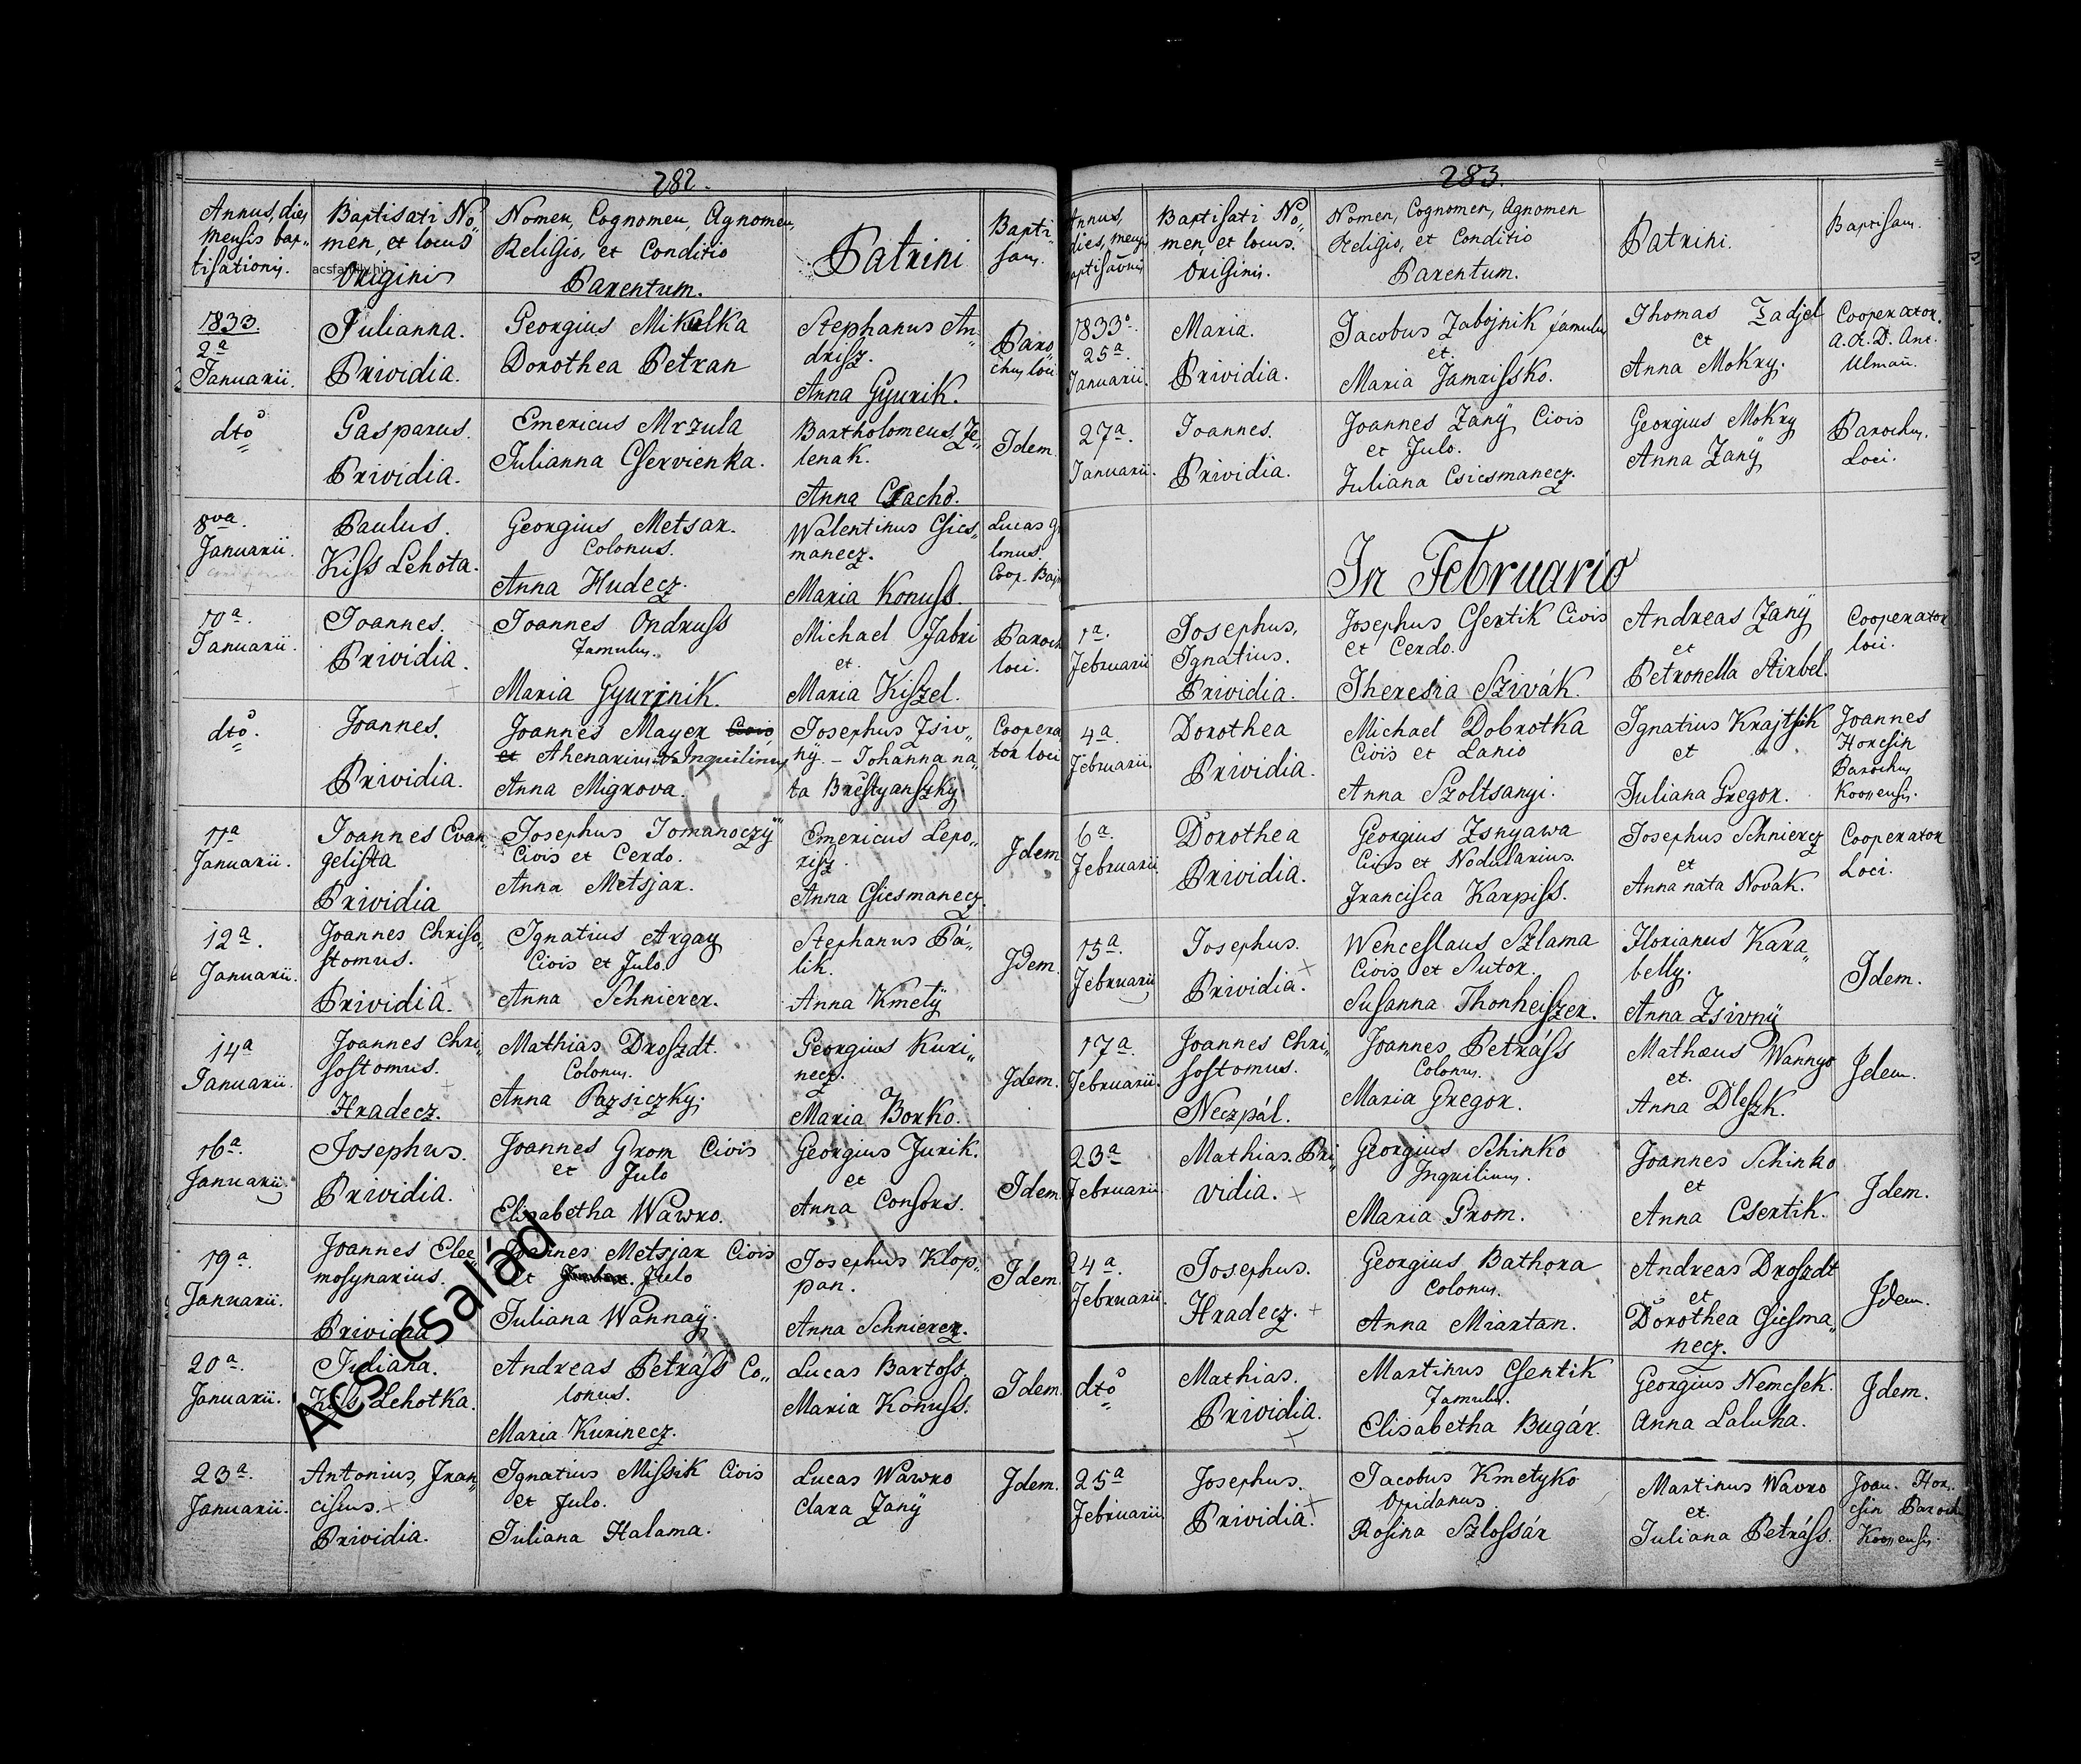 282.
Annus, dies,
mensis bap„
tisationis.
Baptisati No„
men, et locus
Originis
acsfamily.hu
Nomen, Cognomen, Agnomen,
Religio, et Conditio
Parentum.
Patrini
Bapti„
sans.
1833.
2a
Januarii.
Julianna.
Prividia.
Georgius Mikulka
Dorothea Petran
Stephanus An„
drisz.
Anna Gyurik.
Paro„
chus loci
dto
Gasparus.
Prividia.
Emericus Mrzula
Julianna Cservienka.
Bartholomeus Je„
lenak.
Anna Csacho.
Idem.
8va.
Januarii.
Paulus.
Kiss Lehota.
Georgius Metsar.
Colonus.
Anna Hudecz.
Walentinus Csics„
manecz.
Maria Konuss.
Lucas
lonus.
Coop.
10a.
Januarii.
Joannes.
Prividia.
Joannes Ondruss
Famulus.
Maria Gyurinik.
Michael Fabri
et.
Maria Kiszel.
Paroch
loci.
dto.
Joannes.
Prividia.
Joannes Mayer Civis
et Athenarius Inquilinus
Anna Migrova.
Josephus Zsiv„
ný. – Johanna na„
ta Brestyanszky
Coopera
tor loci
11a
Januarii.
Joannes Evan„
gelista
Prividia
Josephus Tomanoczý
Civis et Cerdo.
Anna Metsjar.
Emericus Lepo„
risz.
Anna Csicsmanecz.
Idem
12a.
Januarii.
Joannes Chriso„
stomus.
Prividia.
Ignatius Argay
Civis et Fulo.
Anna Schnierer.
Stephanus Pá„
lik.
Anna Kmetÿ
Idem.
14a
Januarii.
Joannes Chri„
sostomus.
Hradecz.
Mathias Droszdt.
Colonus.
Anna Pazsiczky.
Georgius Kuri„
necz.
Maria Borko.
Idem.
16a.
Januarii
Josephus.
Prividia.
Joannes Grom Civis
et Fulo
Elisabetha Wawro.
Georgius Jurik.
et
Anna Consors.
Idem.
19a
Januarii.
Joannes Elee„
mosynarius.
Prividia
Joannes Metsjar Civis
et Fulo
Juliana Wannaÿ.
Josephus Klop„
pan.
Anna Schnierer.
Idem.
20a.
Januarii.
Juliana.
Kiss Lehotka.
Andreas Petráss Co„
lonus.
Maria Kurinecz.
Lucas Bartoss.
Maria Konuss.
Idem.
23a.
Januarii.
Antonius, Fran„
ciscus.
Prividia.
Ignatius Missik Civis
et Fulo.
Juliana Halama.
Lucas Wawro
Clara Zanÿ
Idem.
Ács család
283.
Annus,
dies, mensis
aptisationis
Baptisati No„
men, et locus.
Originis.
Nomen, Cognomen, Agnomen
Religio, et Conditio
Parentum.
Patrini.
Baptisans.
1833o.
25a.
Januarii.
Maria.
Prividia.
Jacobus Zabojnik famulus
et.
Maria Jamrissko.
Thomas Zadjel
et
Anna Mokry.
Cooperator.
A. R. D. Ant.
Ulman.
27a.
Januarii.
Joannes.
Prividia.
Joannes Zanÿ Civis
et Fulo.
Juliana Csicsmanecz.
Georgius Mokry
Anna Zanÿ
Parochus.
Loci.
In Februario
1a.
Februarii
Josephus,
Ignatius.
Prividia.
Josephus Csertik Civis
et Cerdo.
Theresia Szivák.
Andreas Zanÿ
et
Petronella Stirbel.
Cooperator
loci.
4a.
Februarii.
Dorothea
Prividia.
Michael Dobrotka
Civis et Lanio
Anna Szoltsanyi.
Ignatius Krajtsik
et
Juliana Gregor.
Joannes
Horcsin
Parochus
Kossensis.
6a.
Februarii.
Dorothea
Prividia.
Georgius Zsnyawa
Civis et Nodularius.
Francisca Karpiss.
Josephus Schnierer
et
Anna nata Novak.
Cooperator
Loci.
15a.
Februarii
Josephus.
Prividia.
Wenceslaus Szlama
Civis et Sutor.
Susanna Thonheiszer.
Florianus Kara„
belly.
Anna Zsivnÿ
Idem.
17a.
Februarii.
Joannes Chri„
sostomus.
Neczpál.
Joannes Petráss
Colonus.
Maria Gregor.
Mathæus Wannyo
et.
Anna Dleszk.
Idem.
23a
Februarii.
Mathias. Pri„
vidia.
Georgius Schinko
Inquilinus.
Maria Grom.
Joannes Schinko
et
Anna Csertik.
Idem.
24a.
Februarii.
Josephus.
Hradecz.
Georgius Bathora
Colonus.
Anna Miartan.
Andreas Droszdt
et
Dorothea Csicsma„
necz.
Idem.
dto
Mathias.
Prividia.
Martinus Csentik
Famulus.
Elisabetha Bugár.
Georgius Nemcsek.
Anna Laluha.
Idem.
25a
Februarii
Josephus.
Prividia.
Jacobus Kmetyko
Opidanus.
Rosina Szlossár
Martinus Wavro
et.
Juliana Petráss.
Joan. Hor„
csin Paroch
Kossensis.